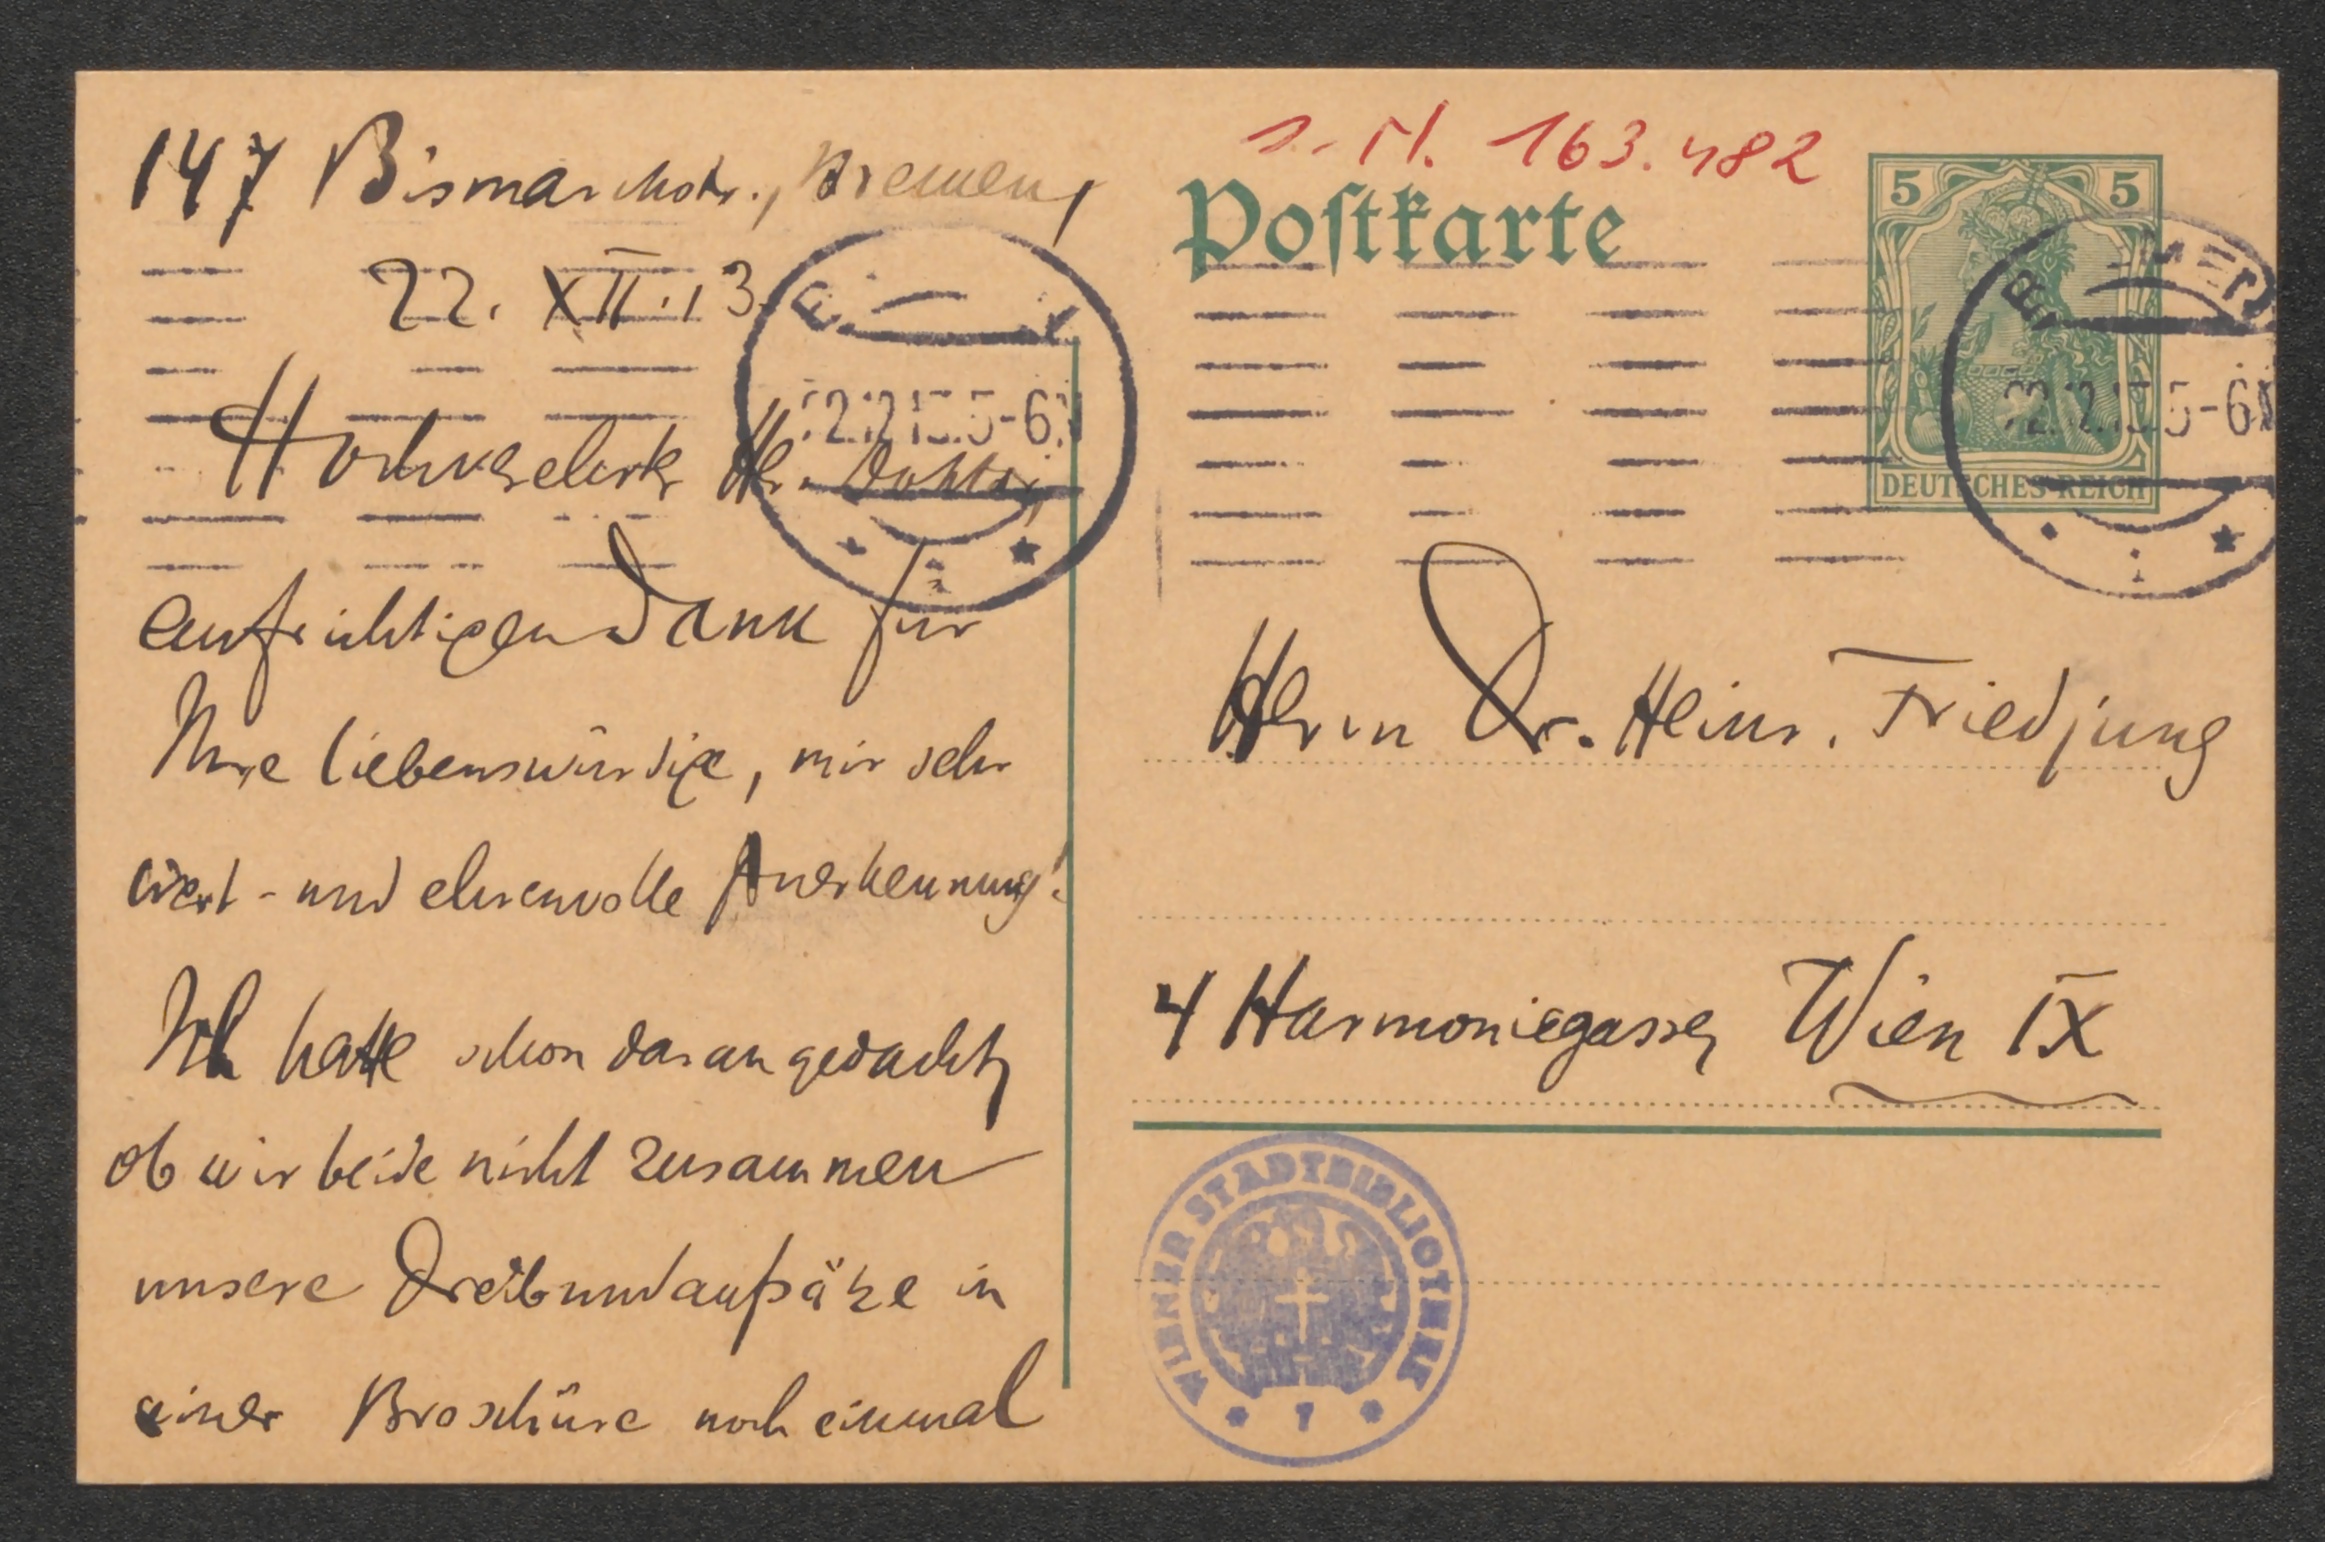 147 Bismarckstr., Bremen,
22. XII. 13.
Hochverehrter Herr Doktor,
aufrichtigen Dank für
Ihre liebenswürdige, mir sehr
wert- und ehrenvolle Anerkennung!
Ich hatte schon daran gedacht,
ob wir beide nicht zusammen
unsere Dreibundaufsätze in
einer Broschüre noch einmal
163.482
Postkarte
5 5
DEUTSCHES REICH
BREMEN
22.12.13.5-6
1
Herrn Dr. Heinr. Friedjung
4 Harmoniegasse, Wien IX
WIENER STADTBIBLIOTHEK
* 7 *